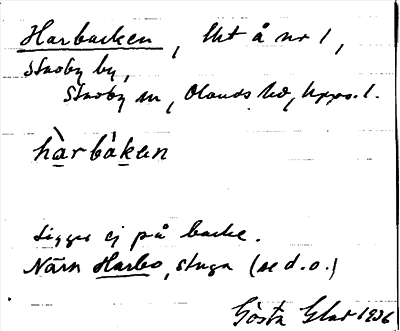 Harbacken, Utt å nr 1,
Stavby by,
Stavby sn, Olands hd, Upps. l.
hàrbàken
Ligger ej på backe.
Nära Harbo, stuga (se d. o.)
Gösta 1936